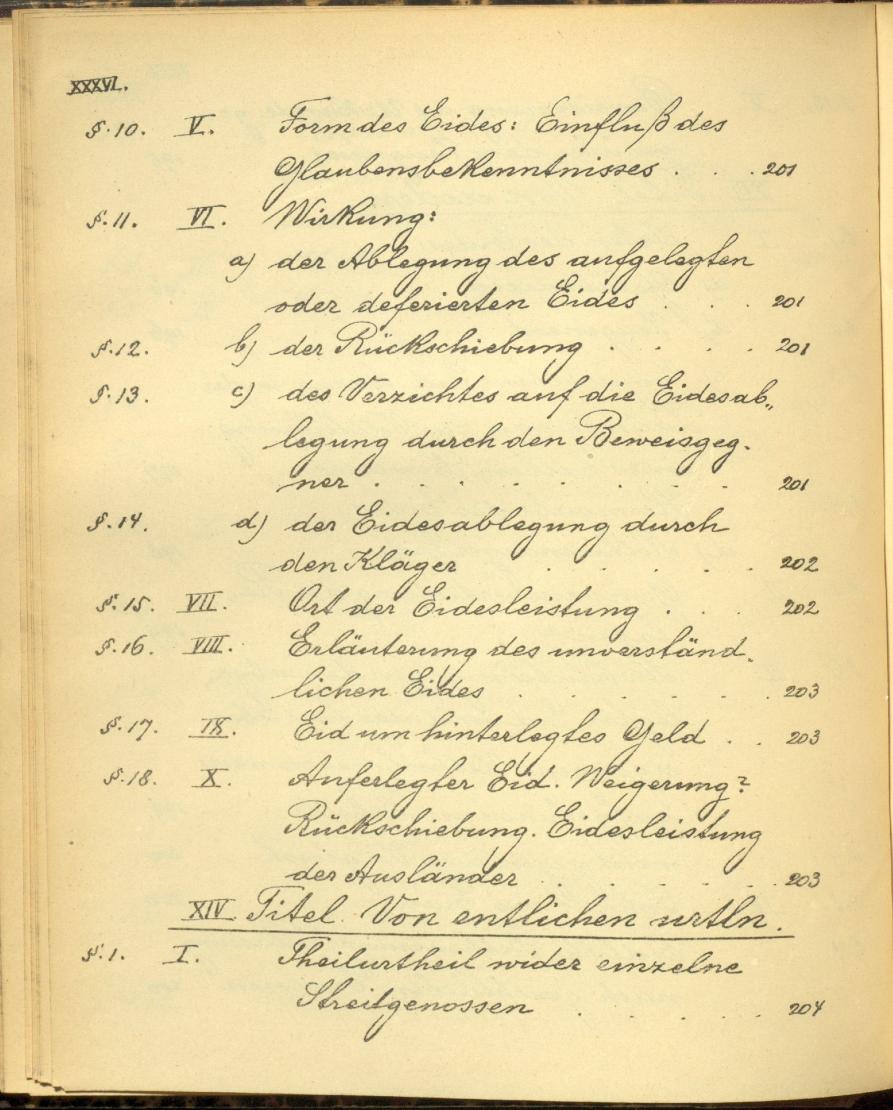 XXXVI.
§. 10. V. Form des Eides: Einfluß des
Glaubensbekenntnisses . . . 201
§. 11. VI. Wirkung:
a) der Ablegung des aufgelegten
oder deferierten Eides . . . 201
§. 12. b) der Rückschiebung . . . . 201
§. 13. c) des Verzichtes auf die Eidesab„
legung durch den Beweisgeg-
ner . . . . . . . . 201
§. 14. d) der Eidesablegung durch
den Kläger . . . . . 202
§. 15. VII. Ort der Eidesleistung . . . 202
§. 16. VIII. Erläuterung des unverständ-
lichen Eides . . . . . . 203
§. 17. IX. Eid um hinterlegtes Geld . . 203
§. 18. X. Auferlegter Eid. Weigerung?
Rückschiebung. Eidesleistung
der Ausländer . . . . . . 203
XIV Titel. Von entlichen urtln.
§. 1. I. Theilurtheil wider einzelne
Streitgenossen . . . . . 204